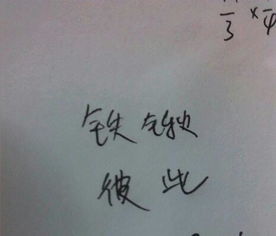 铁锹
彼此